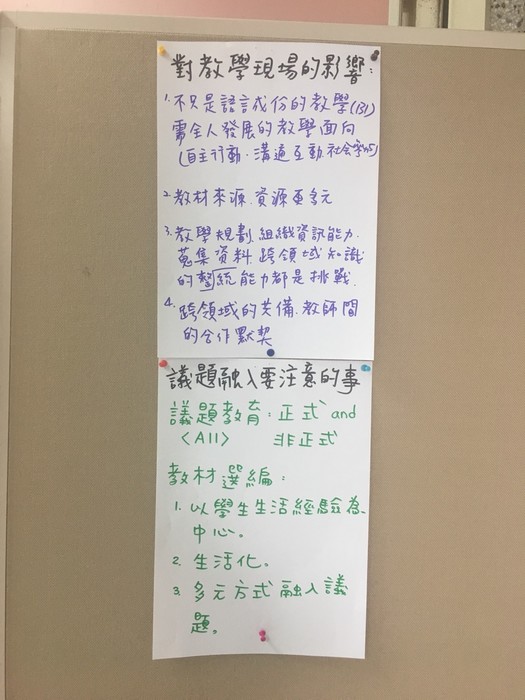 對教學現場的影響：
1. 不只是語言成份的教學(131)
需全人發展的教學面向
(自主行動、溝通互動、社會參與)
2. 教材來源、資源更多元
3. 教學規劃、組織資訊能力、
蒐集資料、跨領域知識
的整統能力都是挑戰.
4. 跨領域的共備、教師間
的合作默契
議題融入要注意的事
議題教育：正式 and
<All> 非正式
教材選編：
1. 以學生生活經驗為
中心。
2. 生活化。
3. 多元方式融入議
題。